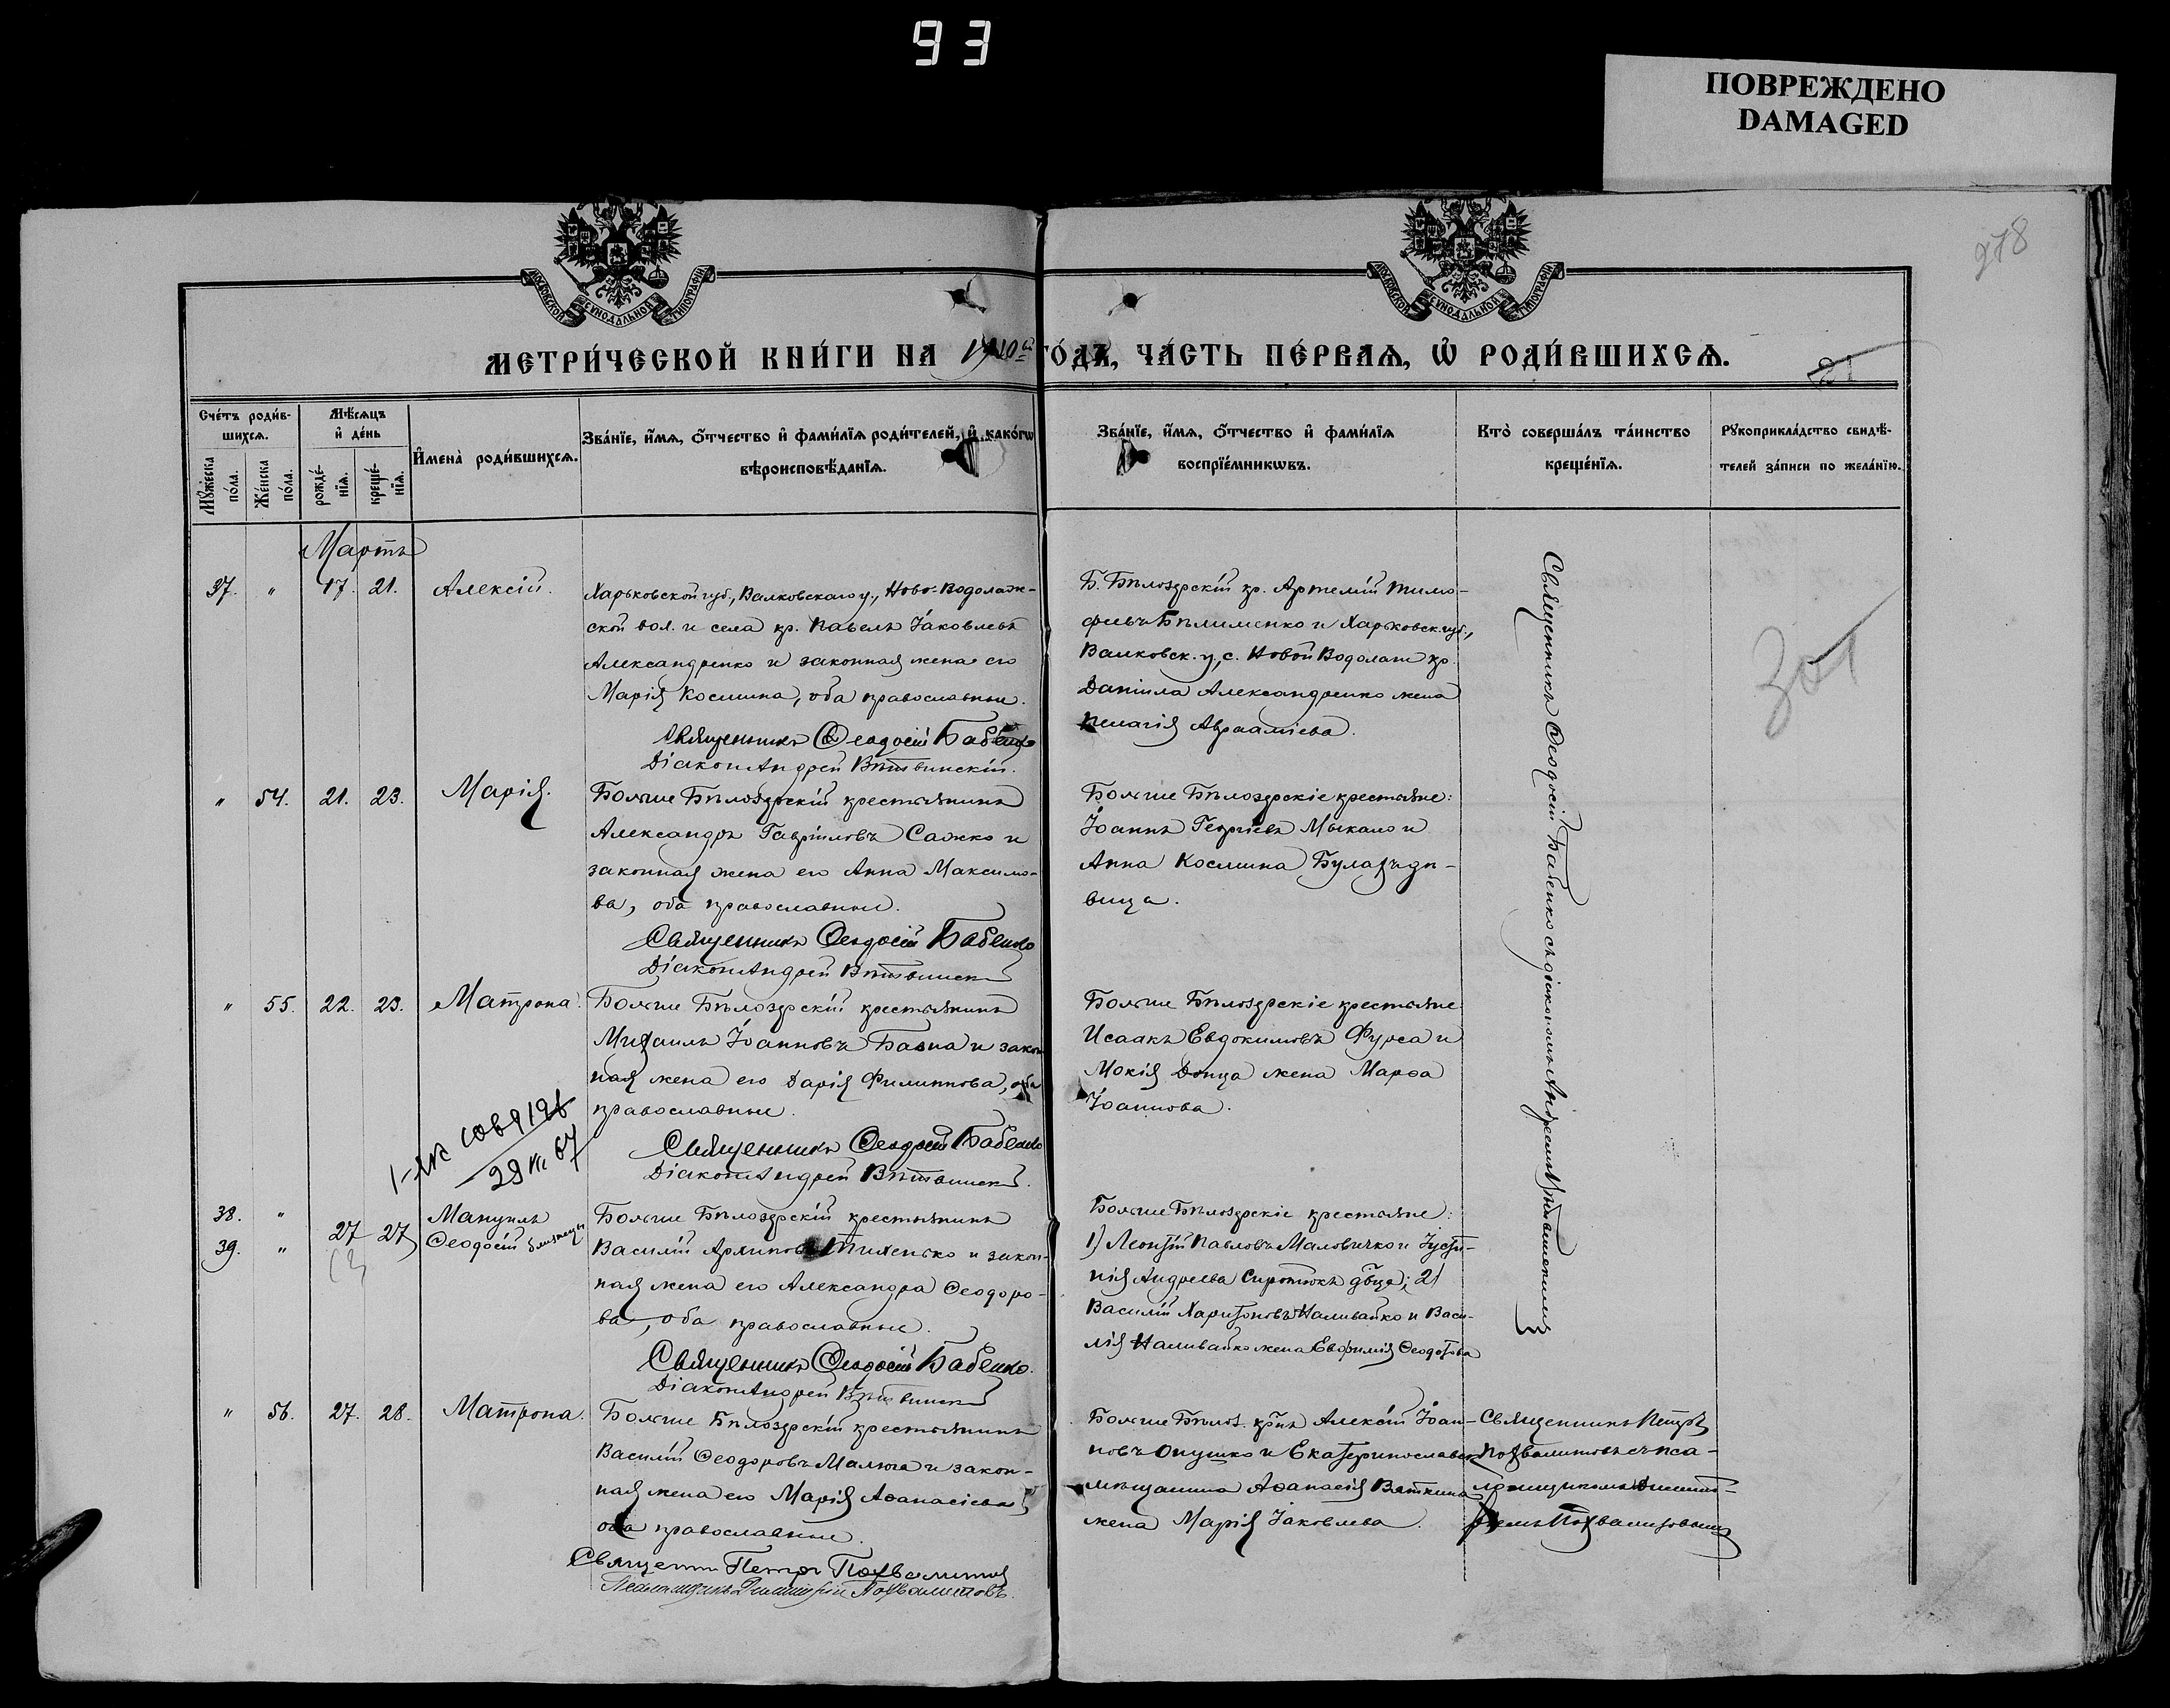 93
ПОВРЕЖДЕНО
DAMAGED
278
МОСКОВСКОЙ СѴНОДАЛЬНОЙ ТИПОГРАФІИ
МОСКОВСКОЙ СѴНОДАЛЬНОЙ ТИПОГРАФІИ
МЕТРИ́ЧЕСКОЙ КНИ́ГИ НА 1910й ГО́ДЪ, ЧА́СТЬ ПЕ́РВАѦ, Ѿ РОДИ́ВШИХСѦ.
21
Сче́тъ роди́в-
шихсѧ.
Мꙋ́жеска
по́ла.
Же́нска
по́ла.
Мѣ́сѧцъ
и҆ де́нь
рожде́-
нїѧ.
креще́-
нїѧ.
И҆мена̀ роди́вшихсѧ.
Зва́нїе, и҆́мѧ, ѻ҆́тчество и҆ фами́лїѧ роди́телей, и҆ како́гѡ
вѣроисповѣ́данїѧ.
Зва́нїе, и҆́мѧ, ѻ҆́тчество и҆ фами́лїѧ
воспрїе́мникѡвъ.
Кто̀ соверша́лъ та́инство
креще́нїѧ.
Рꙋкоприкла́дство свидѣ́-
телей за́писи по жела́нїю.
Мартъ
37. " 17. 21. Алексій.
Харьковской губ., Валковскаго у., Ново-Водолаж-
ской вол. и села кр. Павелъ Іаковлевъ
Александренко и законная жена его
Марія Космина, оба православные.
Священникъ Ѳеодосій Бабенко
Діаконъ Андрей Вѣтвинскій.
Б. Бѣлозерскій кр. Артемій Тимо-
феевъ Бѣлименко и Харьковск. губ.,
Валковск. у., с. Новой Водолаги кр.
Даніила Александренко жена
Пелагія Авраамiева.
Священникъ Ѳеодосій Бабенко съ діакономъ Андреемъ Вѣтвинскимъ
301
" 54. 21. 23. Марія.
Больше Бѣлозерскій крестьянинъ
Александръ Гавріиловъ Сажко и
законная жена его Анна Максимо-
ва, оба православные.
Священникъ Ѳеодосій Бабенко
Діаконъ Андрей Вѣтвинскій
Больше Бѣлозерскіе крестьяне:
Іоаннъ Георгіевъ Мыкало и
Анна Космина Булахъ дѣ-
вица.
" 55. 22. 23. Матрона.
Больше Бѣлозерскій крестьянинъ
Михаилъ Іоанновъ и закон
ная жена его Дарія Филиппова, оба
православные.
Священникъ Ѳеодосій Бабенко
Діаконъ Андрей Вѣтвинскій.
Больше Бѣлозерскіе крестьяне
Исаакъ Евдокимовъ Фурса и
Мокія Донца жена Марѳа
Іоаннова.
38. " Мануилъ
39. " 27 27 Ѳеодосій близнецы
Больше Бѣлозерскій крестьянинъ
Василій Архиповъ Тихенько и закон-
ная жена его Александра Ѳеодоро-
ва, оба православные.
Священникъ Ѳеодосій Бабенко.
Діаконъ Андрей Вѣтвинскій
Больше Бѣлозерскіе крестьяне:
1) Леонтій Павловъ Маловичко и Іусти-
нія Андреева Сиротюкъ дѣвца; 2)
Василій Харитоновъ Наливайко и Васи-
лія Наливайко жена Евфимія Ѳеодотова
" 56. 27. 28. Матрона.
Больше Бѣлозерскій крестьянинъ
Василій Ѳеодоровъ Малюга и закон-
ная жена его Марія Аѳанасіева
оба православные.
Священникъ Петръ Похвалитовъ
Псаломщикъ Димитрій Похвалитовъ.
Больше Бѣлоз. кр-нъ Алексій Іоан-
новъ Опушко и Екатеринославск.
мѣщанина Аѳанасія Вяткина
жена Марія Іаковлева.
Священникъ Петръ
Похвалитовъ съ пса-
ломщикомъ Димит-
ріемъ Похвалитовымъ